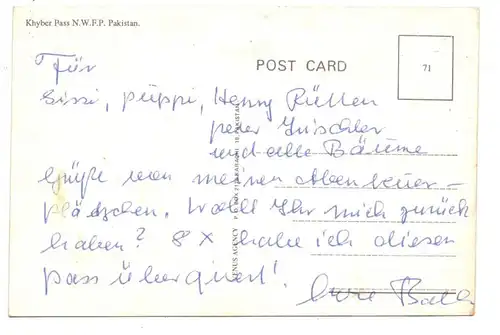 Khyber Pass N.W.F.P. Pakistan.
POST CARD
71
Für
Sissi, Püppi, Henny Rütten
Peter
und alle Bäume
Grüße von meinen Abenteuer-
plätzchen. Wollt Ihr mich zurück
haben? 8 x habe ich diesen
Pass überquert!
Eure
VENUS AGENCY